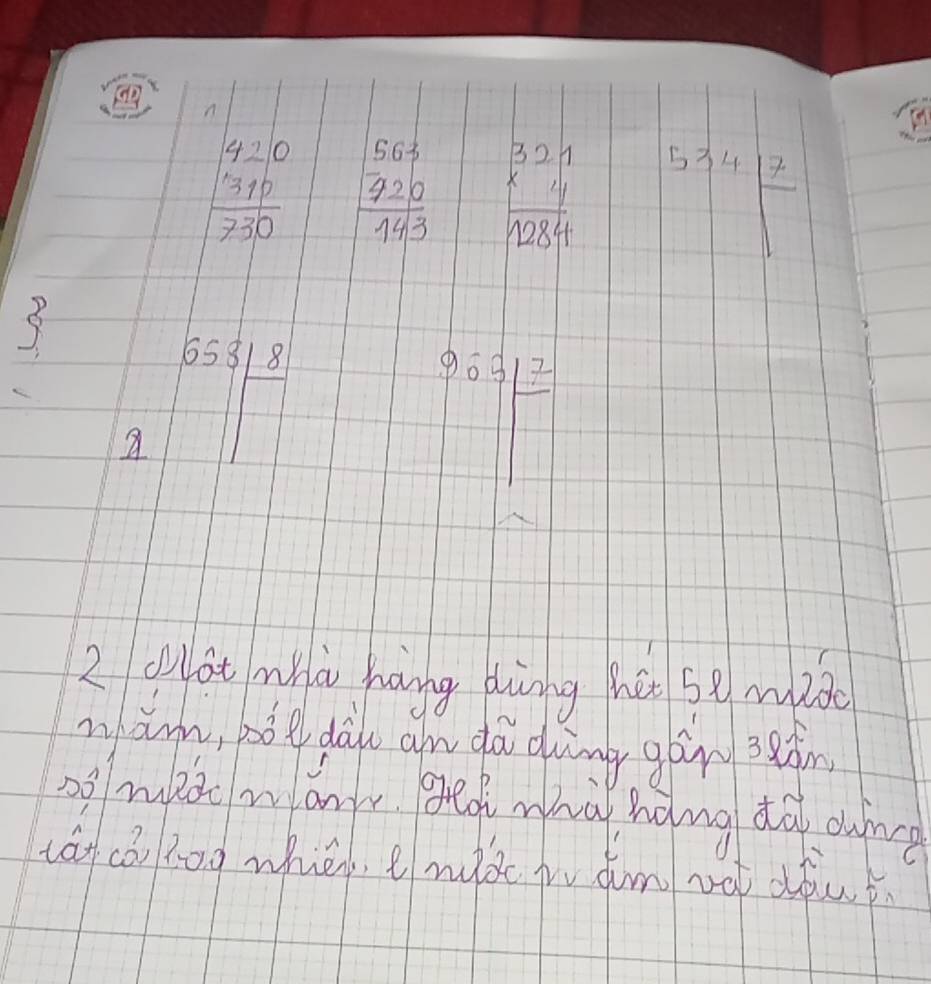 420 563 321 534 7
+310 -420 x 4
730 143 1284
658 8 969 7
2 Một nhà hàng dùng hết 5l nước
mắm, số l dầu ăn đã dùng gấp 3 lần
số nước mắm. Hỏi nhà hàng đã dùng
tất cả bao nhiêu l nước mắm và dầu